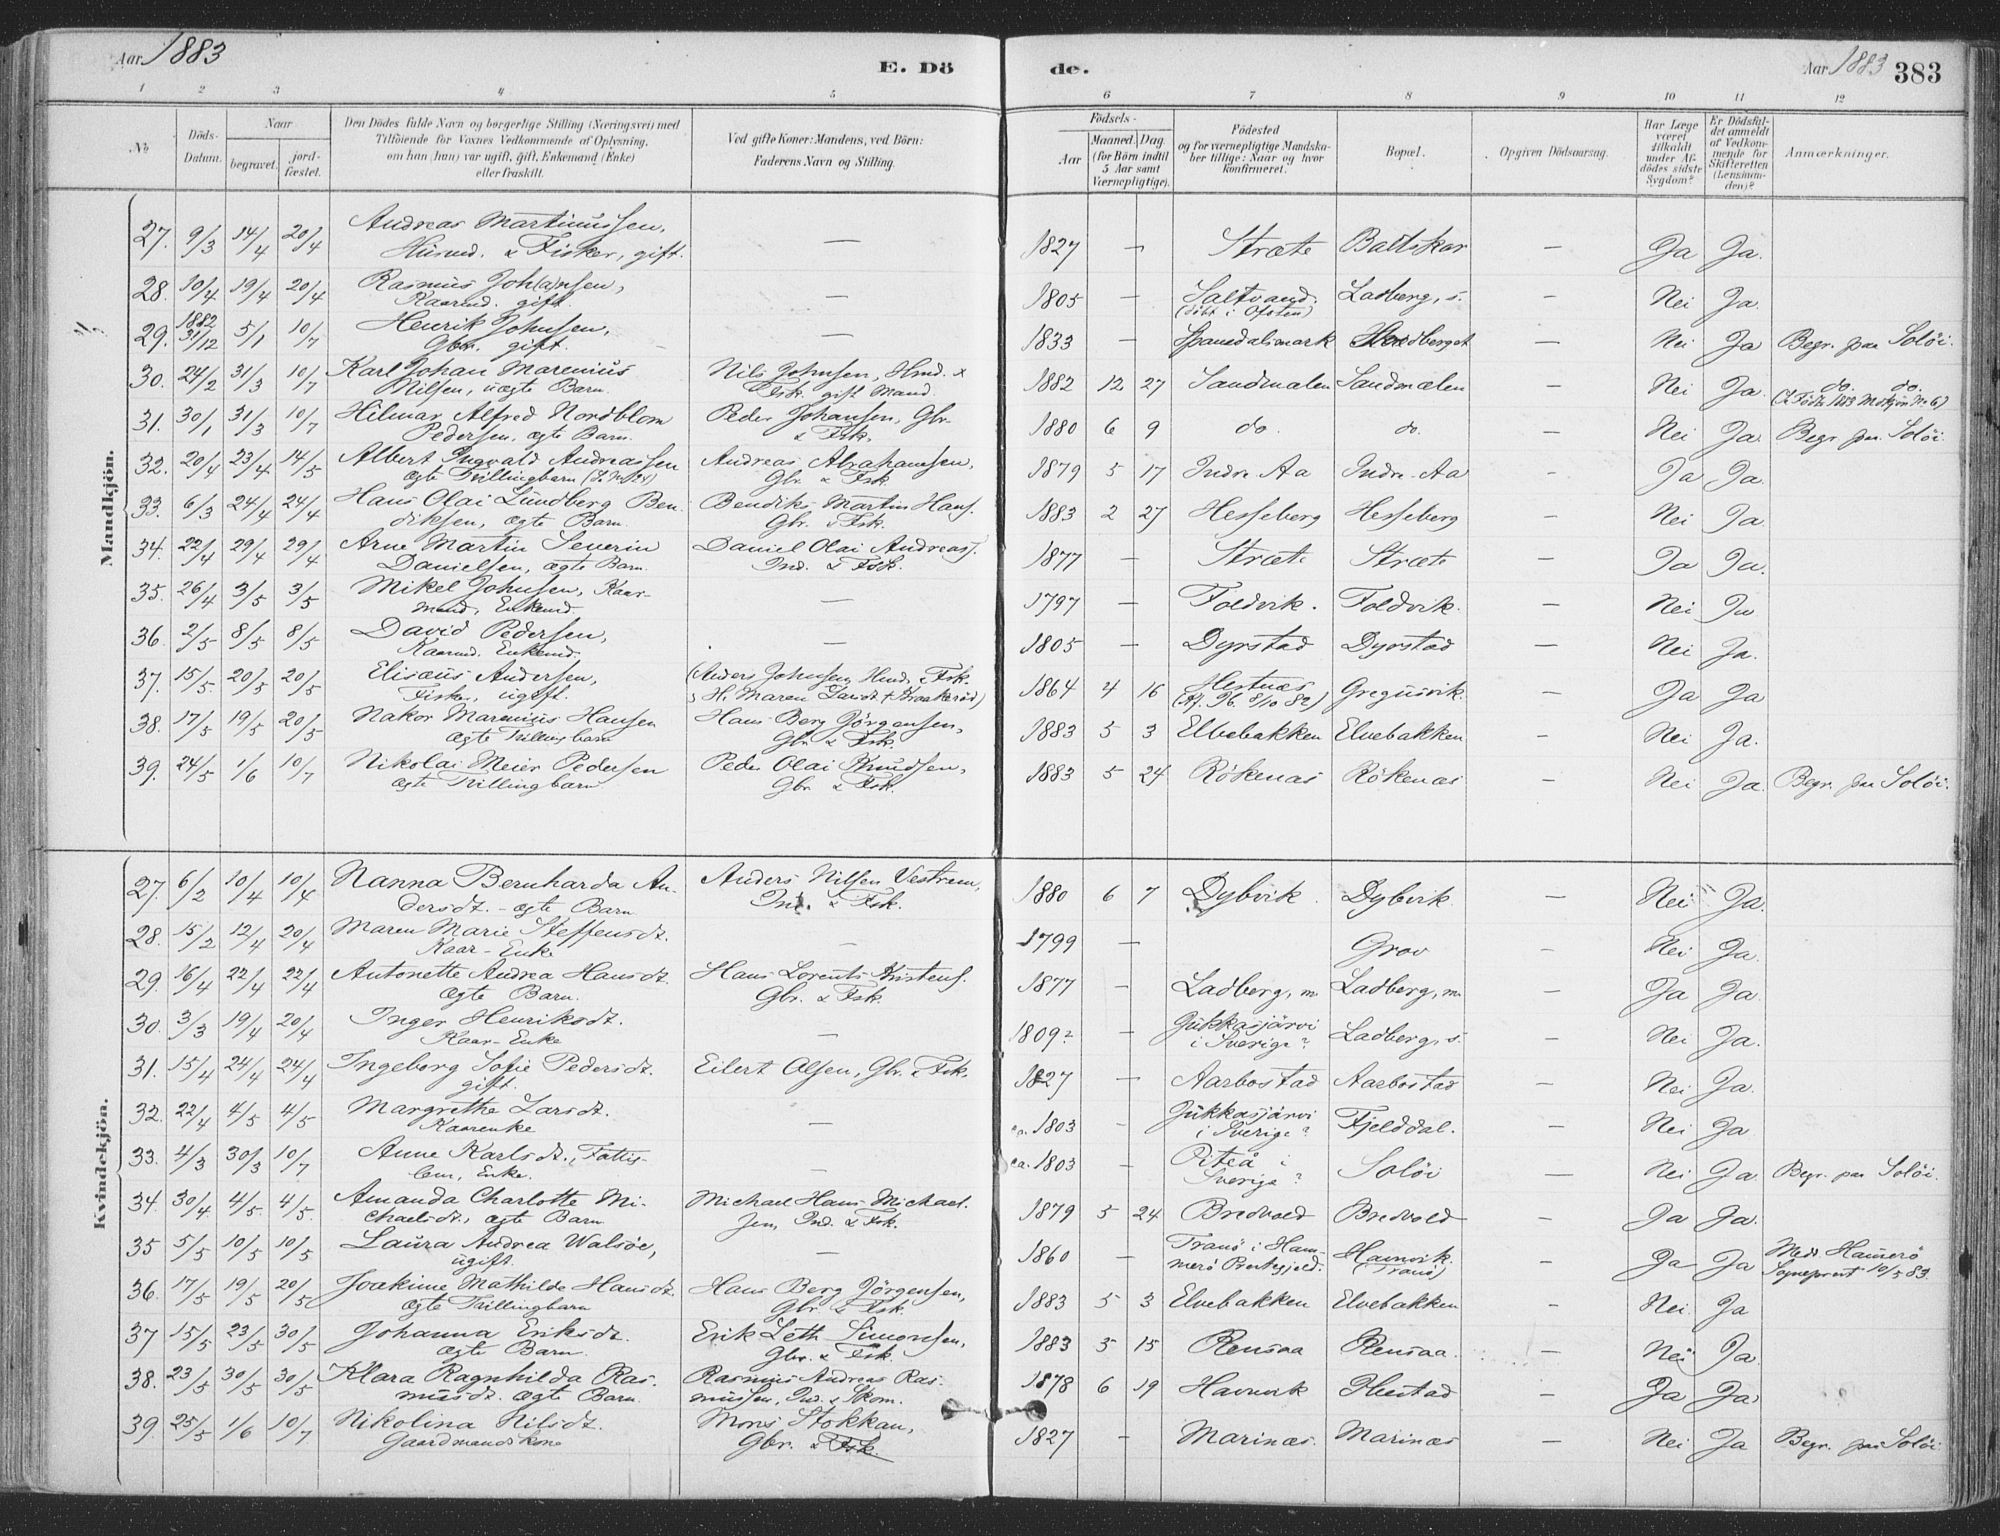 Aar 1883
E. Dö
de.
Aar 1883 383
1 2 3 4 5 6 7 8 9 10 11 12
No
Döds-Datum.
Naar
begravet.
jord-fæstet.
Den Dödes fulde Navn og borgerlige Stilling (Næringsvei) med
Tilföiende for Voxnes Vedkommende af Oplysning,
om han (hun) var ugift, gift, Enkemand (Enke)
eller fraskilt.
Ved gifte Koner: Mandens, ved Börn:
Faderens Navn og Stilling.
Födsels-
Aar
Maaned. Dag.
(for Börn indtil
5 Aar samt
Værnepligtige).
Födested
og for værnepligtige Mandska-
ber tillige: Naar og hvor
konfirmeret.
Bopæl.
Opgiven Dödsaarsag.
Har Læge
været
tilkaldt
under Af-
dödes sidste
Sygdom?
Er Dödsfal-
det anmeldt
af Vedkom-
mende for
Skifteretten
(Lensman-
den)?
Anmærkninger.
Mandkjön.
27. 9/3 14/4 20/4 Andreas Martinussen, — 1827 — Stræte Baltskar — Ja Ja.
Husmd. & Fisker, gift.
28. 10/4 19/4 20/4 Rasmus Joh(a)nsen, — 1805 — Saltvand. Ladberg, s. — Nei Ja.
Kaarmd. gift. (döbt i Ofoten)
29. 1882 31/12 5/1 10/7 Henrik Johnsen, — 1833 — Spansdalsmark — Nei Ja Begr. paa Solöi.
Gbr. gift.
30. 24/2 31/3 10/7 Karl Johan Marenius Nils Johnsen, Hmd. & 1882 12 27 Sandmælen Sandmælen — Nei Ja. do. do.
Nilsen, uægte Barn. Fsk. gift Mand. (Födte 1883 Mdkjön No 6)
31. 30/1 31/3 10/7 Hilmar Alfred Nordblom Peder Johansen, Gbr. 1880 6 9 do. do. — Nei Ja. Begr. paa Solöi.
Pedersen, ægte Barn. & Fsk.
32. 20/4 23/4 14/5 Albert Ingvald Andreassen Andreas Abrahamsen, 1879 5 17 Indre Aa Indre Aa — Ja Ja.
ægte Tvillingbarn Gbr. & Fsk.
33. 6/3 24/4 24/4 Hans Olai Lundberg Ben- Bendiks Martin Hans. 1883 2 27 Hesseberg Hesseberg — Nei Ja.
diksen, ægte Barn. Gbr. & Fsk.
34. 22/4 29/4 29/4 Arne Martin Severin Daniel Olai Andreass. 1877 — Stræte Stræte — Ja Ja.
Danielsen, ægte Barn. Ind. & Fsk.
35. 26/4 3/5 3/5 Mikel Johnsen, Kaar- — 1797 — Foldvik. Foldvik. — Nei Ja
mand, Enkemd.
36. 2/5 8/5 8/5 David Pedersen, — 1805 — Dyrstad Dyrstad — Nei Ja.
Kaarmd. Enkemd.
37. 15/5 20/5 20/5 Elisæus Andersen, (Anders Johnsen, Hmd. & Fsk. 1864 4 16 Hestnæs Gregusvik. — Ja Ja
Fisker, ugift. H. Maren Davidt. (Kf. Ib. 8/10 82)
38. 17/5 19/5 20/5 Nakor Marenius Hansen Hans Berg Jörgensen, 1883 5 3 Elvebakken Elvebakken — Nei Ja.
ægte Tvillingbarn Gbr. & Fsk.
39. 24/5 1/6 10/7 Nikolai Meier Pedersen Peder Olai Knudsen, 1883 5 24 Rökenæs Rökenæs — Nei Ja. Begr. paa Solöi.
ægte Tvillingbarn Gbr. & Fsk.
Kvindekjön.
27. 6/2 10/4 10/4 Nanna Bernharda An- Anders Nilsen Vestrem, 1880 6 7 Dybvik. Dybvik. — Nei Ja.
dersdt. - ægte Barn Ind. & Fsk.
28. 15/2 12/4 20/4 Maren Marie Steffensdt. — 1799 — Grov — Nei Ja.
Kaar-Enke
29. 16/4 22/4 22/4 Antonette Andrea Hansdt. Hans Lorents Kristens. 1877 — Ladberg, m. Ladberg, m. — Ja Ja.
ægte Barn. Gbr. & Fsk.
30. 3/3 19/4 20/4 Inger Henriksdt. — 1809? — Jukkasjärvi Ladberg, s. — Nei Ja.
Kaar-Enke i Sverige?
31. 15/4 24/4 24/4 Ingeborg Sofie Pedersdt. Eilert Olsen, Gbr. & Fsk. 1827 — Aarbostad Aarbostad — Nei Ja.
gift.
32. 22/4 4/5 4/5 Margrethe Larsdt. — ca. 1803 — Jukkasjärvi Fjelddal. — Nei Ja
Kaarenke i Sverige?
33. 4/3 30/3 10/7 Anne Karlsdt., Fattig- — ca. 1803 — Piteå i Solöi — Nei Ja Begr. paa Solöi.
lem, Enke. Sverige?
34. 30/4 4/5 4/5 Amanda Charlotte Mi- Michael Hans Michael- 1879 5 24 Bredvold Bredvold — Ja Ja.
chaelsdt., ægte Barn sen, Ind. & Fsk.
35 5/5 10/5 10/5 Laura Andrea Walsöe, — 1860 — Tranö i Ham- Havnvik. — Ja Ja Medd. Hamerö
ugift. merö Prestegjeld. (Tranö) Sogneprest 10/5 83.
36. 17/5 19/5 20/5 Joakime Mathilde Hansdt. Hans Berg Jörgensen, 1883 5 3 Elvebakken Elvebakken — Nei. Ja
ægte Tvillingbarn Gbr. & Fsk.
37 15/5 23/5 30/5 Johanna Eriksdt. Erik Leth Simonsen, 1883 5 15 Rensaa Rensaa. — Nei Ja.
ægte Barn. Gbr. & Fsk.
38. 23/5 30/5 30/5 Klara Ragnhilda Ras- Rasmus Andreas Ras- 1878 6 19 Havnvik — Ja Ja,
musdt. ægte Barn mussen, Ind. & Skom.
39. 25/5 1/6 10/7 Nikolina Nilsdt. Mons Stokkan, 1827 — Marinæs. Marinæs — Nei Ja Begr. paa Solöi.
Gaardmandskone Gbr. & Fsk.